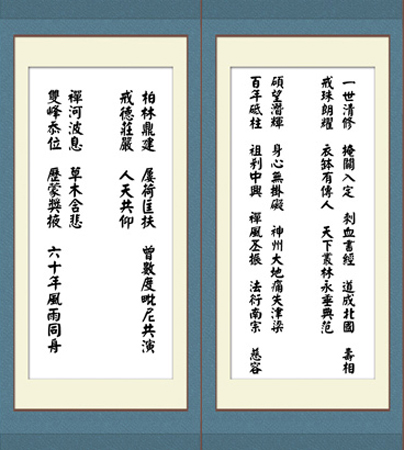 一世清修 掩關入定 刺血書經 道成北國 壽相
戒珠朗耀 衣缽有傳人 天下叢林永垂典范
碩望潛輝 身心無掛礙 神州大地痛失津梁
百年砥柱 祖刹中興 禪風丕振 法衍南宗 慈容
柏林鼎建 屢荷匡扶 曾數度毗尼共演
戒德莊嚴 人天共仰
禪河波息 草木含悲
雙峰忝位 歷蒙獎掖 六十年風雨同舟